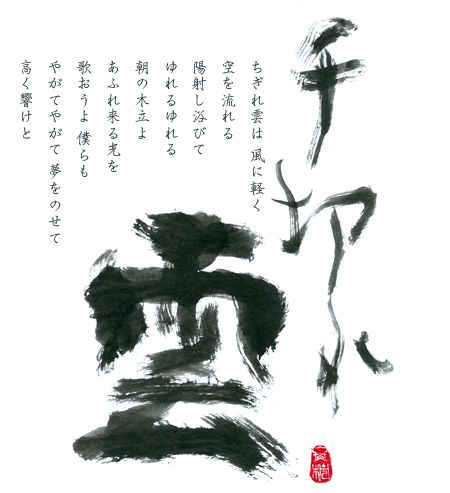 千切れ
雲
ちぎれ雲は 風に軽く
空を流れる
陽射し浴びて
ゆれるゆれる
朝の木立よ
あふれ来る光を
歌おうよ 僕らも
やがてやがて 夢をのせて
高く響けと